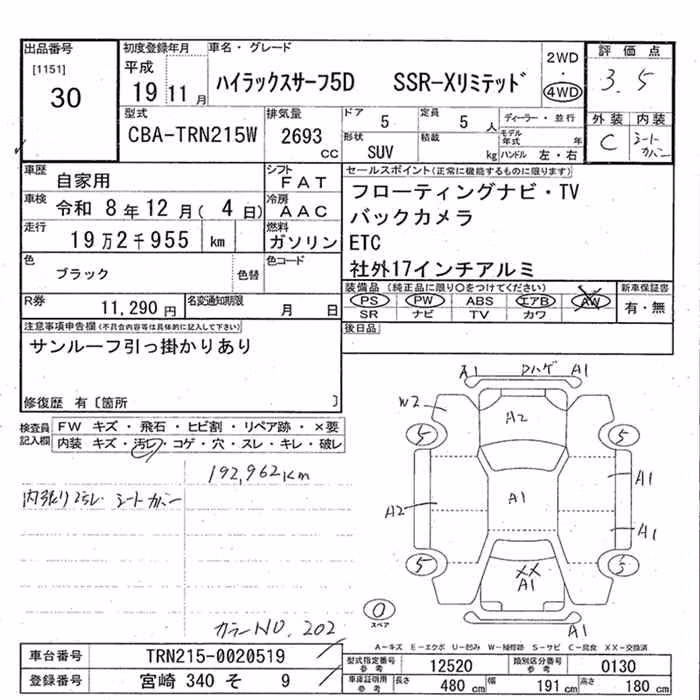 出品番号
[1151]
30
初度登録年月
平成
19 11 月
車名・グレード
ハイラックスサーフ5D SSR-Xリミテッド
2WD
・
4WD
評価点
3.5
外装 内装
C シートカバー
型式
CBA-TRN215W
排気量
2693
cc
ドア
5
定員
5 人
形状
SUV
積載
kg
ディーラー・並行
モデル年式 年
ハンドル 左・右
車歴
自家用
シフト
FAT
車検
令和 8年12月( 4日)
冷房
AAC
走行
19万2千955 km
燃料
ガソリン
色
ブラック
色替
色コード
R券
11,290円
名変通知期限
月 日
セールスポイント(正常に機能するものに限ります)
フローティングナビ・TV
バックカメラ
ETC
社外17インチアルミ
装備品(純正品に限り○をつけてください)
PS PW ABS エアB AW
SR ナビ TV カワ
新車保証書
有・無
後日品
注意事項申告欄(不具合内容等は具体的に記入して下さい)
サンルーフ引っ掛かりあり
修復歴 有〔箇所 〕
検査員記入欄
FW キズ・飛石・ヒビ割・リペア跡・×要
内装 キズ・汚レ・コゲ・穴・スレ・キレ・破レ
192,962Km
内張り汚レ シートカバー
カラーNO, 202
A1 ロハゲ A1
W2
A2
5 5
A1
A2 A1
A1
5 5
XX
A1
0
スペア
A1
A-キズ E-エクボ U-凹み W-補修跡 S-サビ C-腐食 XX-交換済
車台番号
TRN215-0020519
登録番号
宮崎 340 そ 9
型式指定番号 参考
12520
類別区分番号 参考
0130
車庫証明用 参考
長さ 480 cm
幅 191 cm
高さ 180 cm